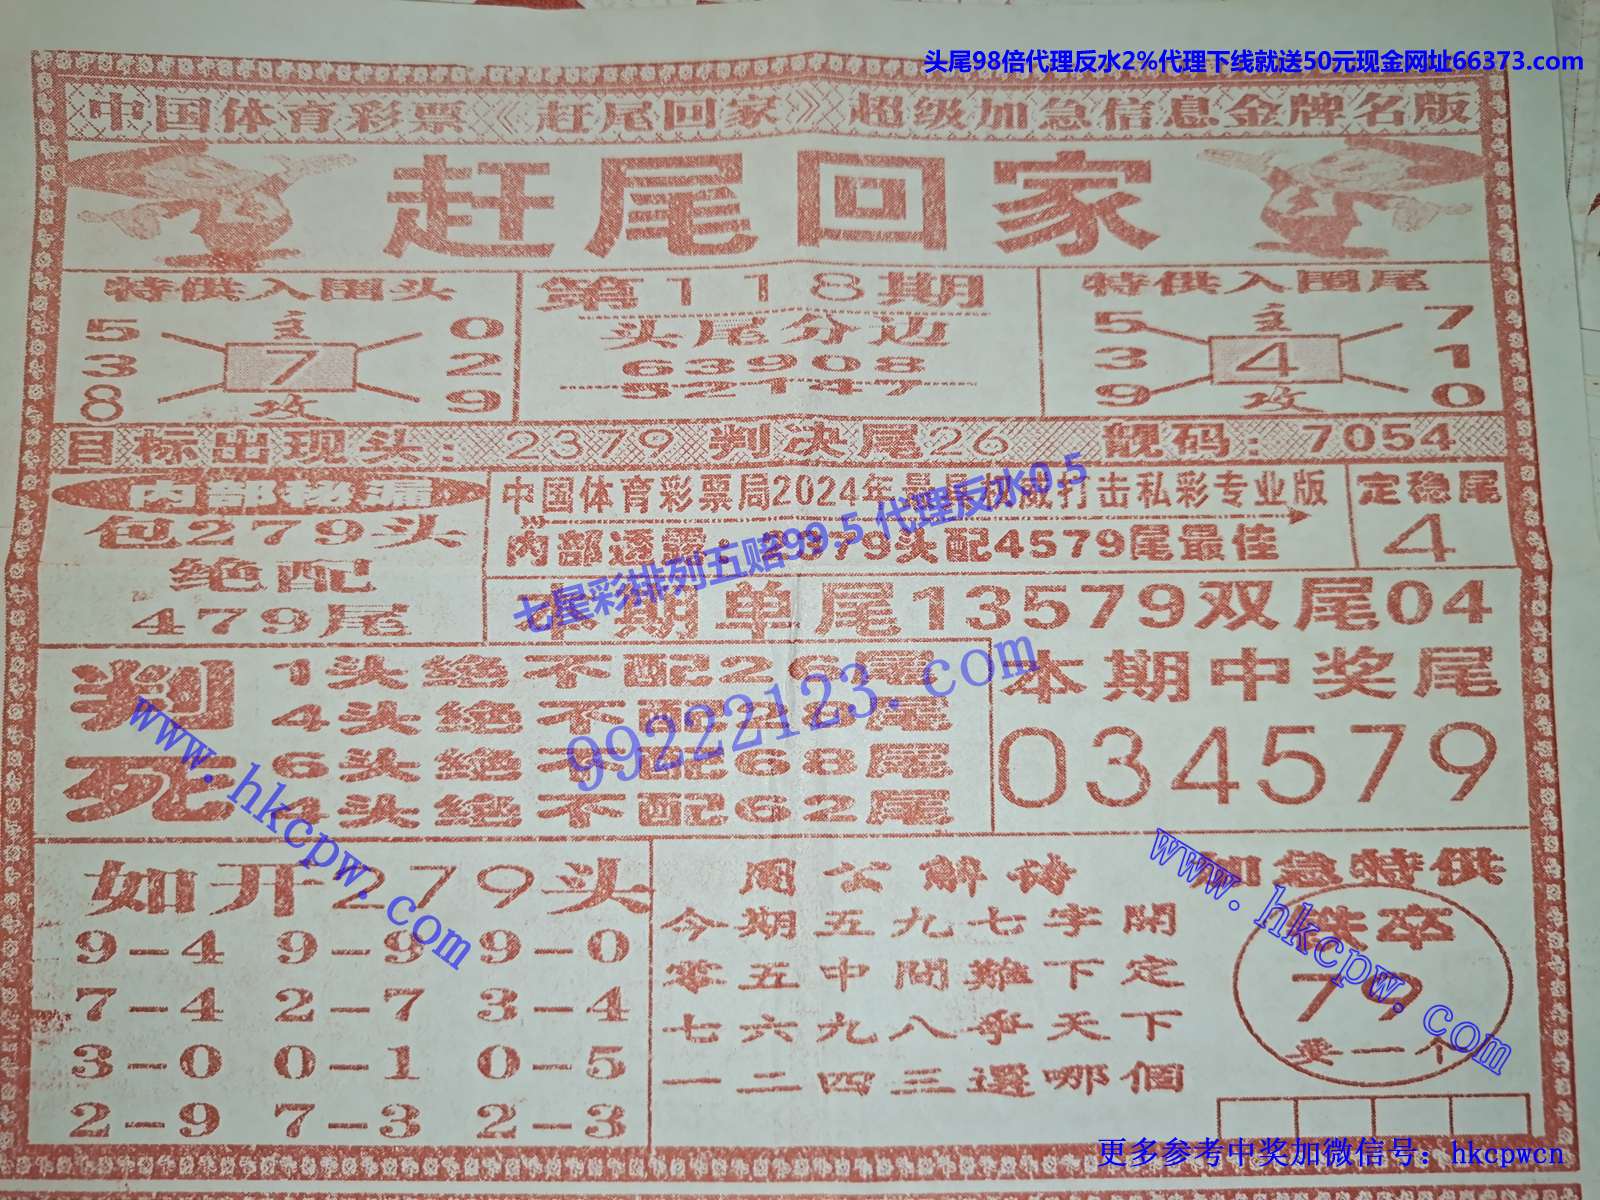 头尾98倍代理反水2%代理下线就送50元现金网址66373.com
中国体育彩票《赶尾回家》超级加急信息金牌名版
赶尾回家
特供入围头
5 主 0
3 7 2
8 攻 9
第118期
头尾分边
63908
52147
特供入围尾
5 主 7
3 4 1
9 攻 0
目标出现头：2379 判决尾26 靓码：7054
内部秘漏
包279头
绝配
479尾
中国体育彩票局2024年最具权威打击私彩专业版
内部透露：2379头配4579尾最佳
定稳尾
4
七星彩排列五赔99.5 代理反水0.5
本期单尾13579双尾04
判死
1头绝不配26尾
4头绝不配 尾
6头绝不配68尾
4头绝不配62尾
99222123.com
本期中奖尾
034579
www.hkcpw.com
如开279头
9-4 9-9 9-0
7-4 2-7 3-4
3-0 0-1 0-5
2-9 7-3 2-3
周公解诗
今期五九七字開
零五中間難下定
七六九八爭天下
一二四三選哪個
加急特供
卒
79
要一个
www.hkcpw.com
更多参考中奖加微信号：hkcpwcn